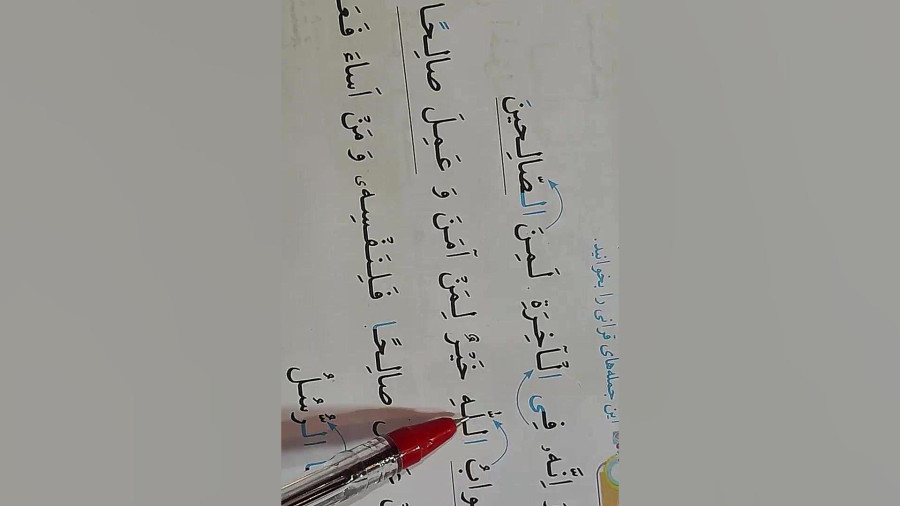 این جمله‌های قرآنی را بخوانید.
اِنَّهُۥ فِی الْآخِرَةِ لَمِنَ الصّالِحینَ
اللّٰهِ خَیْرٌ لِمَنْ آمَنَ وَ عَمِلَ صالِحًا
صالِحًا فَلِنَفْسِهٖ وَ مَنْ اَساءَ
الرُّسُلُ